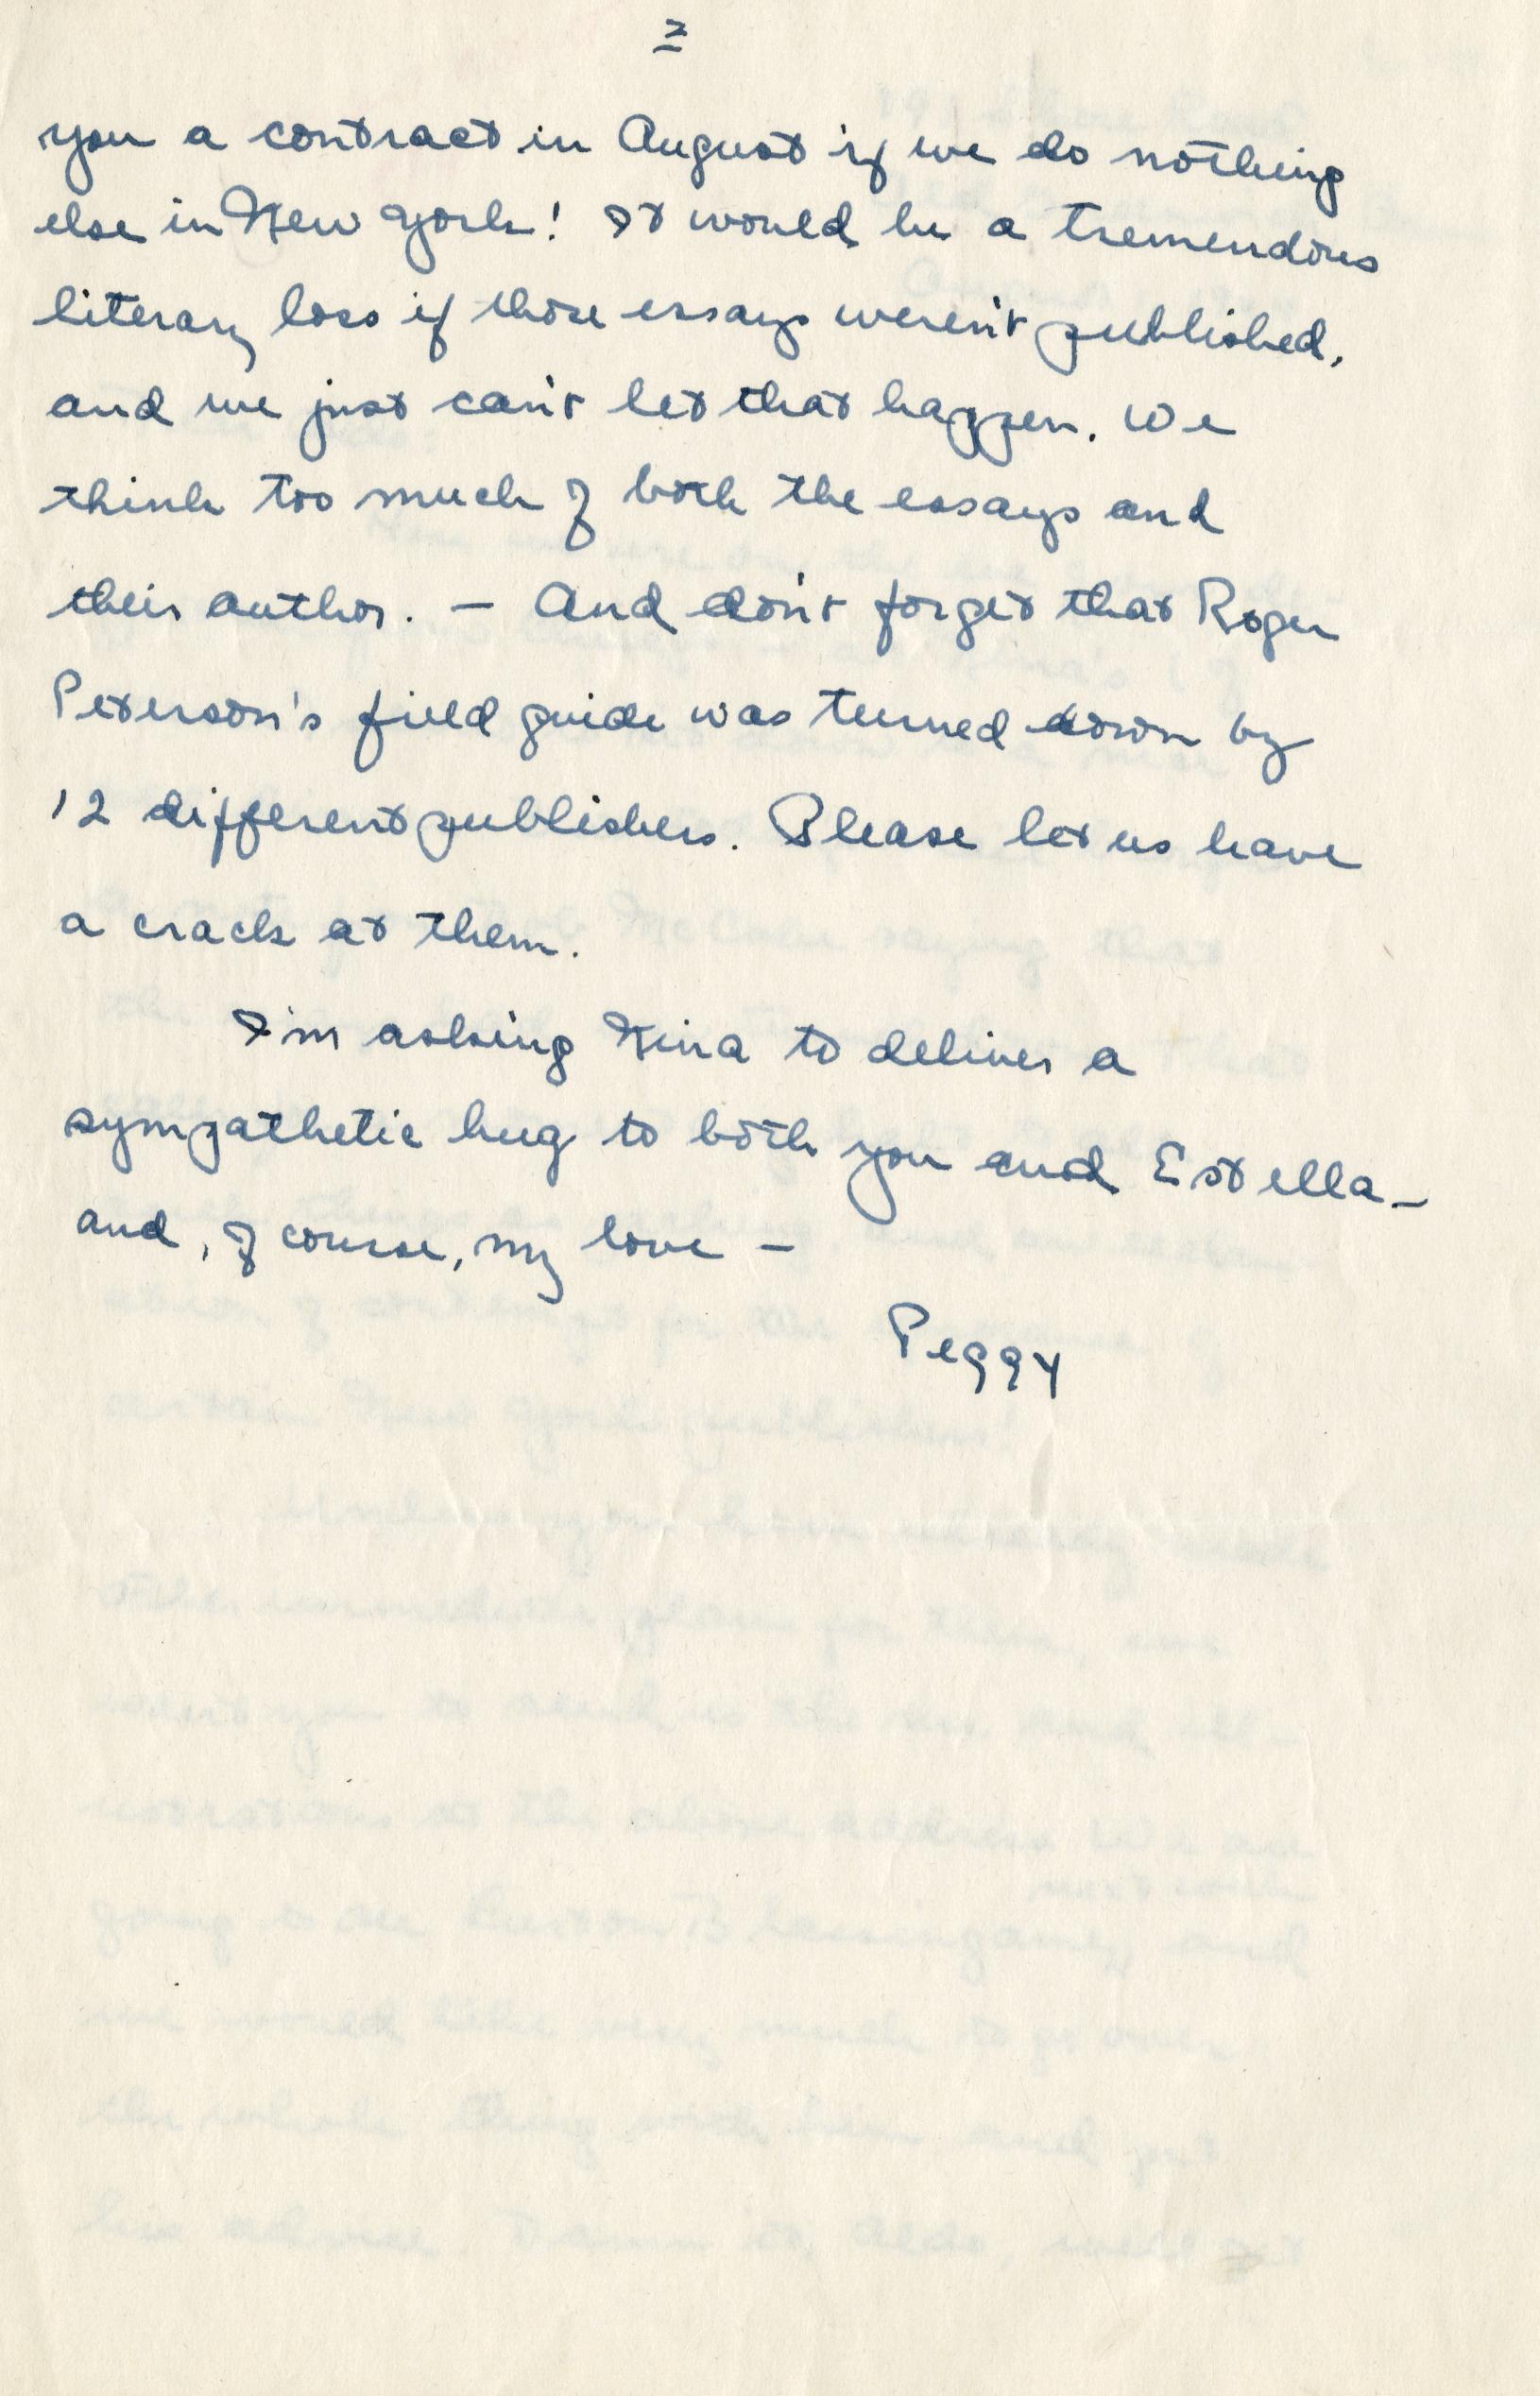 2
you a contract in August if we do nothing
else in New York! It would be a tremendous
literary loss if those essays weren't published,
and we just can't let that happen. We
think too much of both the essays and
their author. — And don't forget that Roger
Peterson's field guide was turned down by
12 different publishers. Please let us have
a crack at them.
I'm asking Nina to deliver a
sympathetic hug to both you and Estella —
and, of course, my love —
Peggy